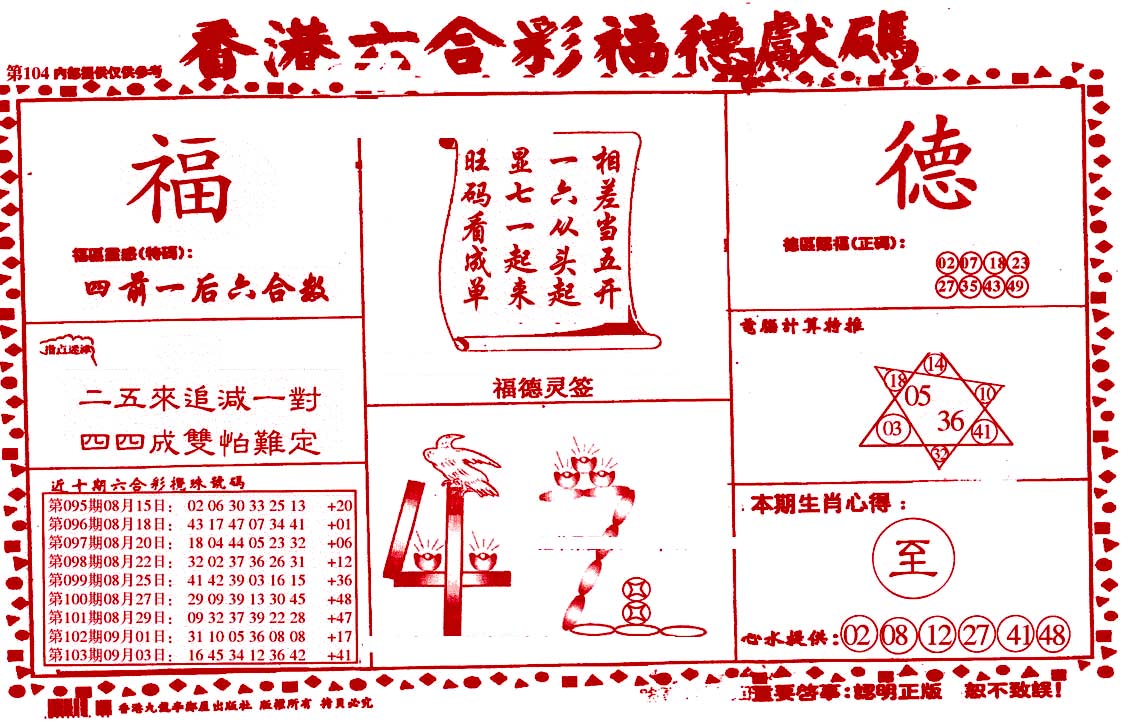 香港六合彩福德獻碼
第104 内部提供仅供参考
福
福區靈感(特碼):
四前一后六合数
指点迷津
二五來追減一對
四四成雙怕難定
近十期六合彩攪珠號碼
第095期08月15日: 02 06 30 33 25 13 +20
第096期08月18日: 43 17 47 07 34 41 +01
第097期08月20日: 18 04 44 05 23 32 +06
第098期08月22日: 32 02 37 36 26 31 +12
第099期08月25日: 41 42 39 03 16 15 +36
第100期08月27日: 29 09 39 13 30 45 +48
第101期08月29日: 09 32 37 39 22 28 +47
第102期09月01日: 31 10 05 36 08 08 +17
第103期09月03日: 16 45 34 12 36 42 +41
相差当五开
一六从头起
显七一起来
旺码看成单
福德灵签
德
德區賜福(正碼):
02 07 18 23
27 35 43 49
電腦計算特推
14
18
05
10
03
36
41
32
本期生肖心得:
至
心水提供: 02 08 12 27 41 48
重要啓事:認明正版 恕不致誤!
出版社 版權所有 拷貝必究